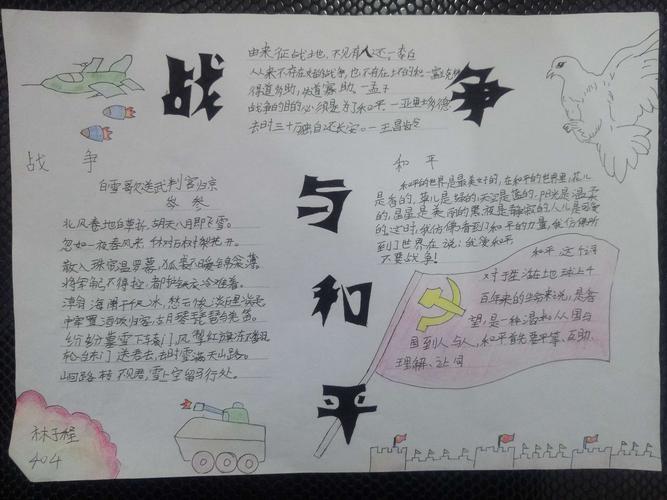 战争与和平
由来征战地,不见有人还。—李白
从来不存在好的战争,也不存在坏的和—富兰克林
得道多助,失道寡助。—孟子
战争的目的必须是为了和平—亚里士多德
去时三十万,独自还长安。—王昌龄
战争
白雪歌送武判官归京
岑参
北风卷地白草折,胡天八月即飞雪。
忽如一夜春风来,千树万树梨花开。
散入珠帘湿罗幕,狐裘不暖锦衾薄。
将军角弓不得控,都护铁衣冷难着。
瀚海阑干百丈冰,愁云
中军置酒饮归客,胡琴琵琶与羌笛。
纷纷暮雪下辕门,风掣红旗冻不翻。
轮台东门送君去,去时雪满天山路。
山回路转不见君,雪上空留马行处。
和平
和平的世界是最美好的,在和平的世界里,花儿
是香的,草儿是绿的,天空是蓝的,阳光是温柔
的,星星是美丽的,黑夜是静寂的,人儿是可爱
的。这时,我仿佛看到了和平的力量,我仿佛听
到了世界在说:我爱和平
不要战争!
和平这个词
对于生活在地球上千
百年来的生命来说,是希
望,是一种温和,从国与
国到人与人,和平首先要平等、互助、
理解、让同
林子程
404